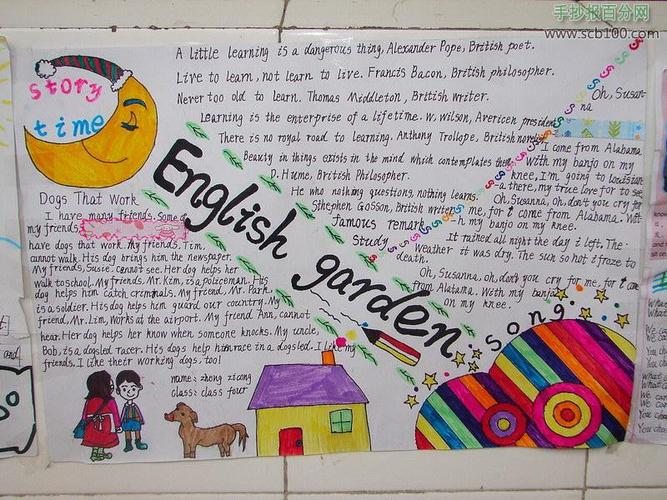 手抄报百分网
www.scb100.com
story
time
A little learning is a dangerous thing, Alexander Pope, British poet.
Live to learn, not learn to live. Francis Bacon, British philosopher.
Never too old to learn. Thomas Middleton, British writer.
Learning is the enterprise of a lifetime. W. wilson, Avericen president
There is no royal road to learning. Anthony Trollope, British novelist
Beauty in things exists in the mind which contemplates them
D. Hume, British Philosopher.
He who nothing questions, nothing learns.
Sthephen Gosson, British writer
famous remark
Study
English garden
Dogs That Work
I have many friends. Some of
my friends
have dogs that work. My friends. Tim,
cannot walk. His dog brings him the newspaper.
My friends, Susie. cannot see. Her dog helps her
walk to school. My friends. Mr. Kim, is a policeman. His
dog helps him catch crminals. My friend, Mr. Park
is a soldier. His dogs help him guard our country. My
friend, Mr. Lim, works at the airport. My friend Ann, cannot
hear. Her dog helps her know when someone knocks. My uncle,
Bob, is a dogsled racer. His dogs help him race in a dogsled. I like my
friends. I like their working dogs, too!
Oh, Susan-
na
I come from Alabama
with my banjo on my
knee, I'm going to Louisian-
a there, my true love for to see
Oh, Susanna, oh, don't you cry for
me, for I come from Alabama. Wit
h my banjo on my knee.
It rained all night the day i left, The
weather it was dry. The sun so hot i froze to
death.
Oh, Susanna, oh, don't you cry for me, for I come
from Alatama. With my banjo
on my knee.
song
name: zheng
class: class four